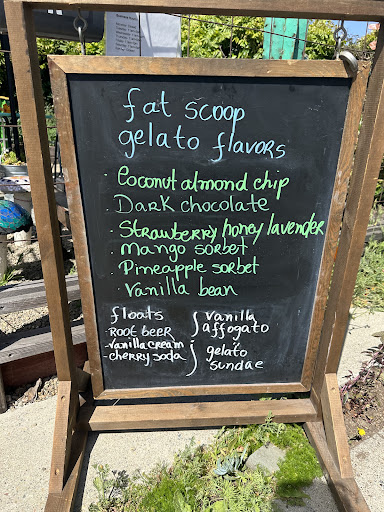 fat scoop
gelato flavors
· Coconut almond chip
· Dark chocolate
· Strawberry honey lavender
· Mango sorbet
· Pineapple sorbet
· Vanilla bean
floats
· Root beer
· Vanilla cream
· cherry soda
vanilla
affogato
gelato
sundae